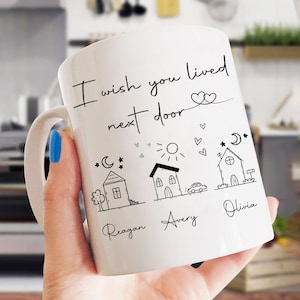 I wish you lived
next door
Reagan Avery Olivia